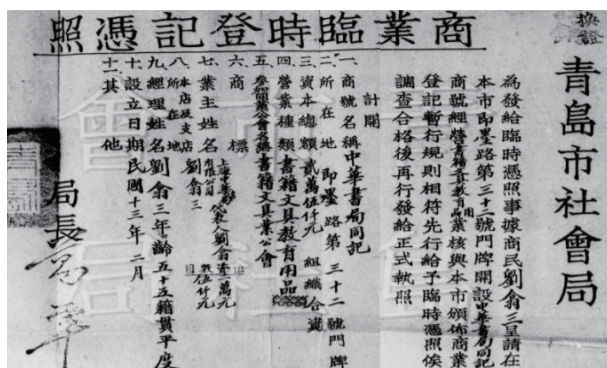 換證
商業臨時登記憑照
青島市社會局
為發給臨時憑照事據商民劉翁三呈請在
本市即墨路第三十二號門牌開設中華書局同記
商號經營書籍文具教育用品業核與本市頒佈商業
登記暫行規則相符先行給予臨時憑照俟
調查合格後再行發給正式執照
計開
一、商號名稱中華書局同記
二、所在地即墨路第三十二號門牌
三、資本總額貳萬伍仟元 組織合資
四、營業種類書籍文具教育用品
五、參加同業公會名稱書籍文具業公會
六、商標
七、業主姓名 有限公司代表人劉翁 劉翁三 伍仟元
八、本店及支店所在地
九、經理姓名劉翁三年齡五十五籍貫平度
十、設立日期民國十三年二月
十一、其他
局長